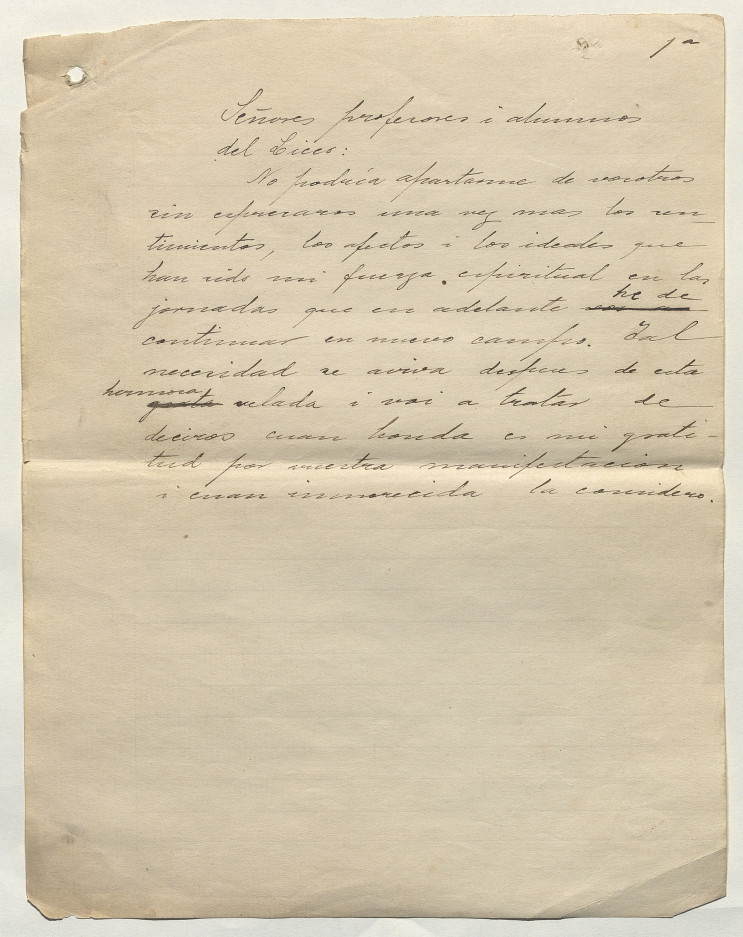 1ª
Señores profesores i alumnos
del Liceo:
No podria apartarme de vosotros
sin espresaros una vez mas los sen-
timientos, los afectos i los ideales que
han sido mi fuerza espiritual en las
jornadas que en adelante he de
continuar en nuevo campo. Tal
necesidad se aviva despues de esta
hermosa velada i voi a tratar de
deciros cuan honda es mi grati-
tud por vuestra manifestacion
i cuan inmerecida la considero.